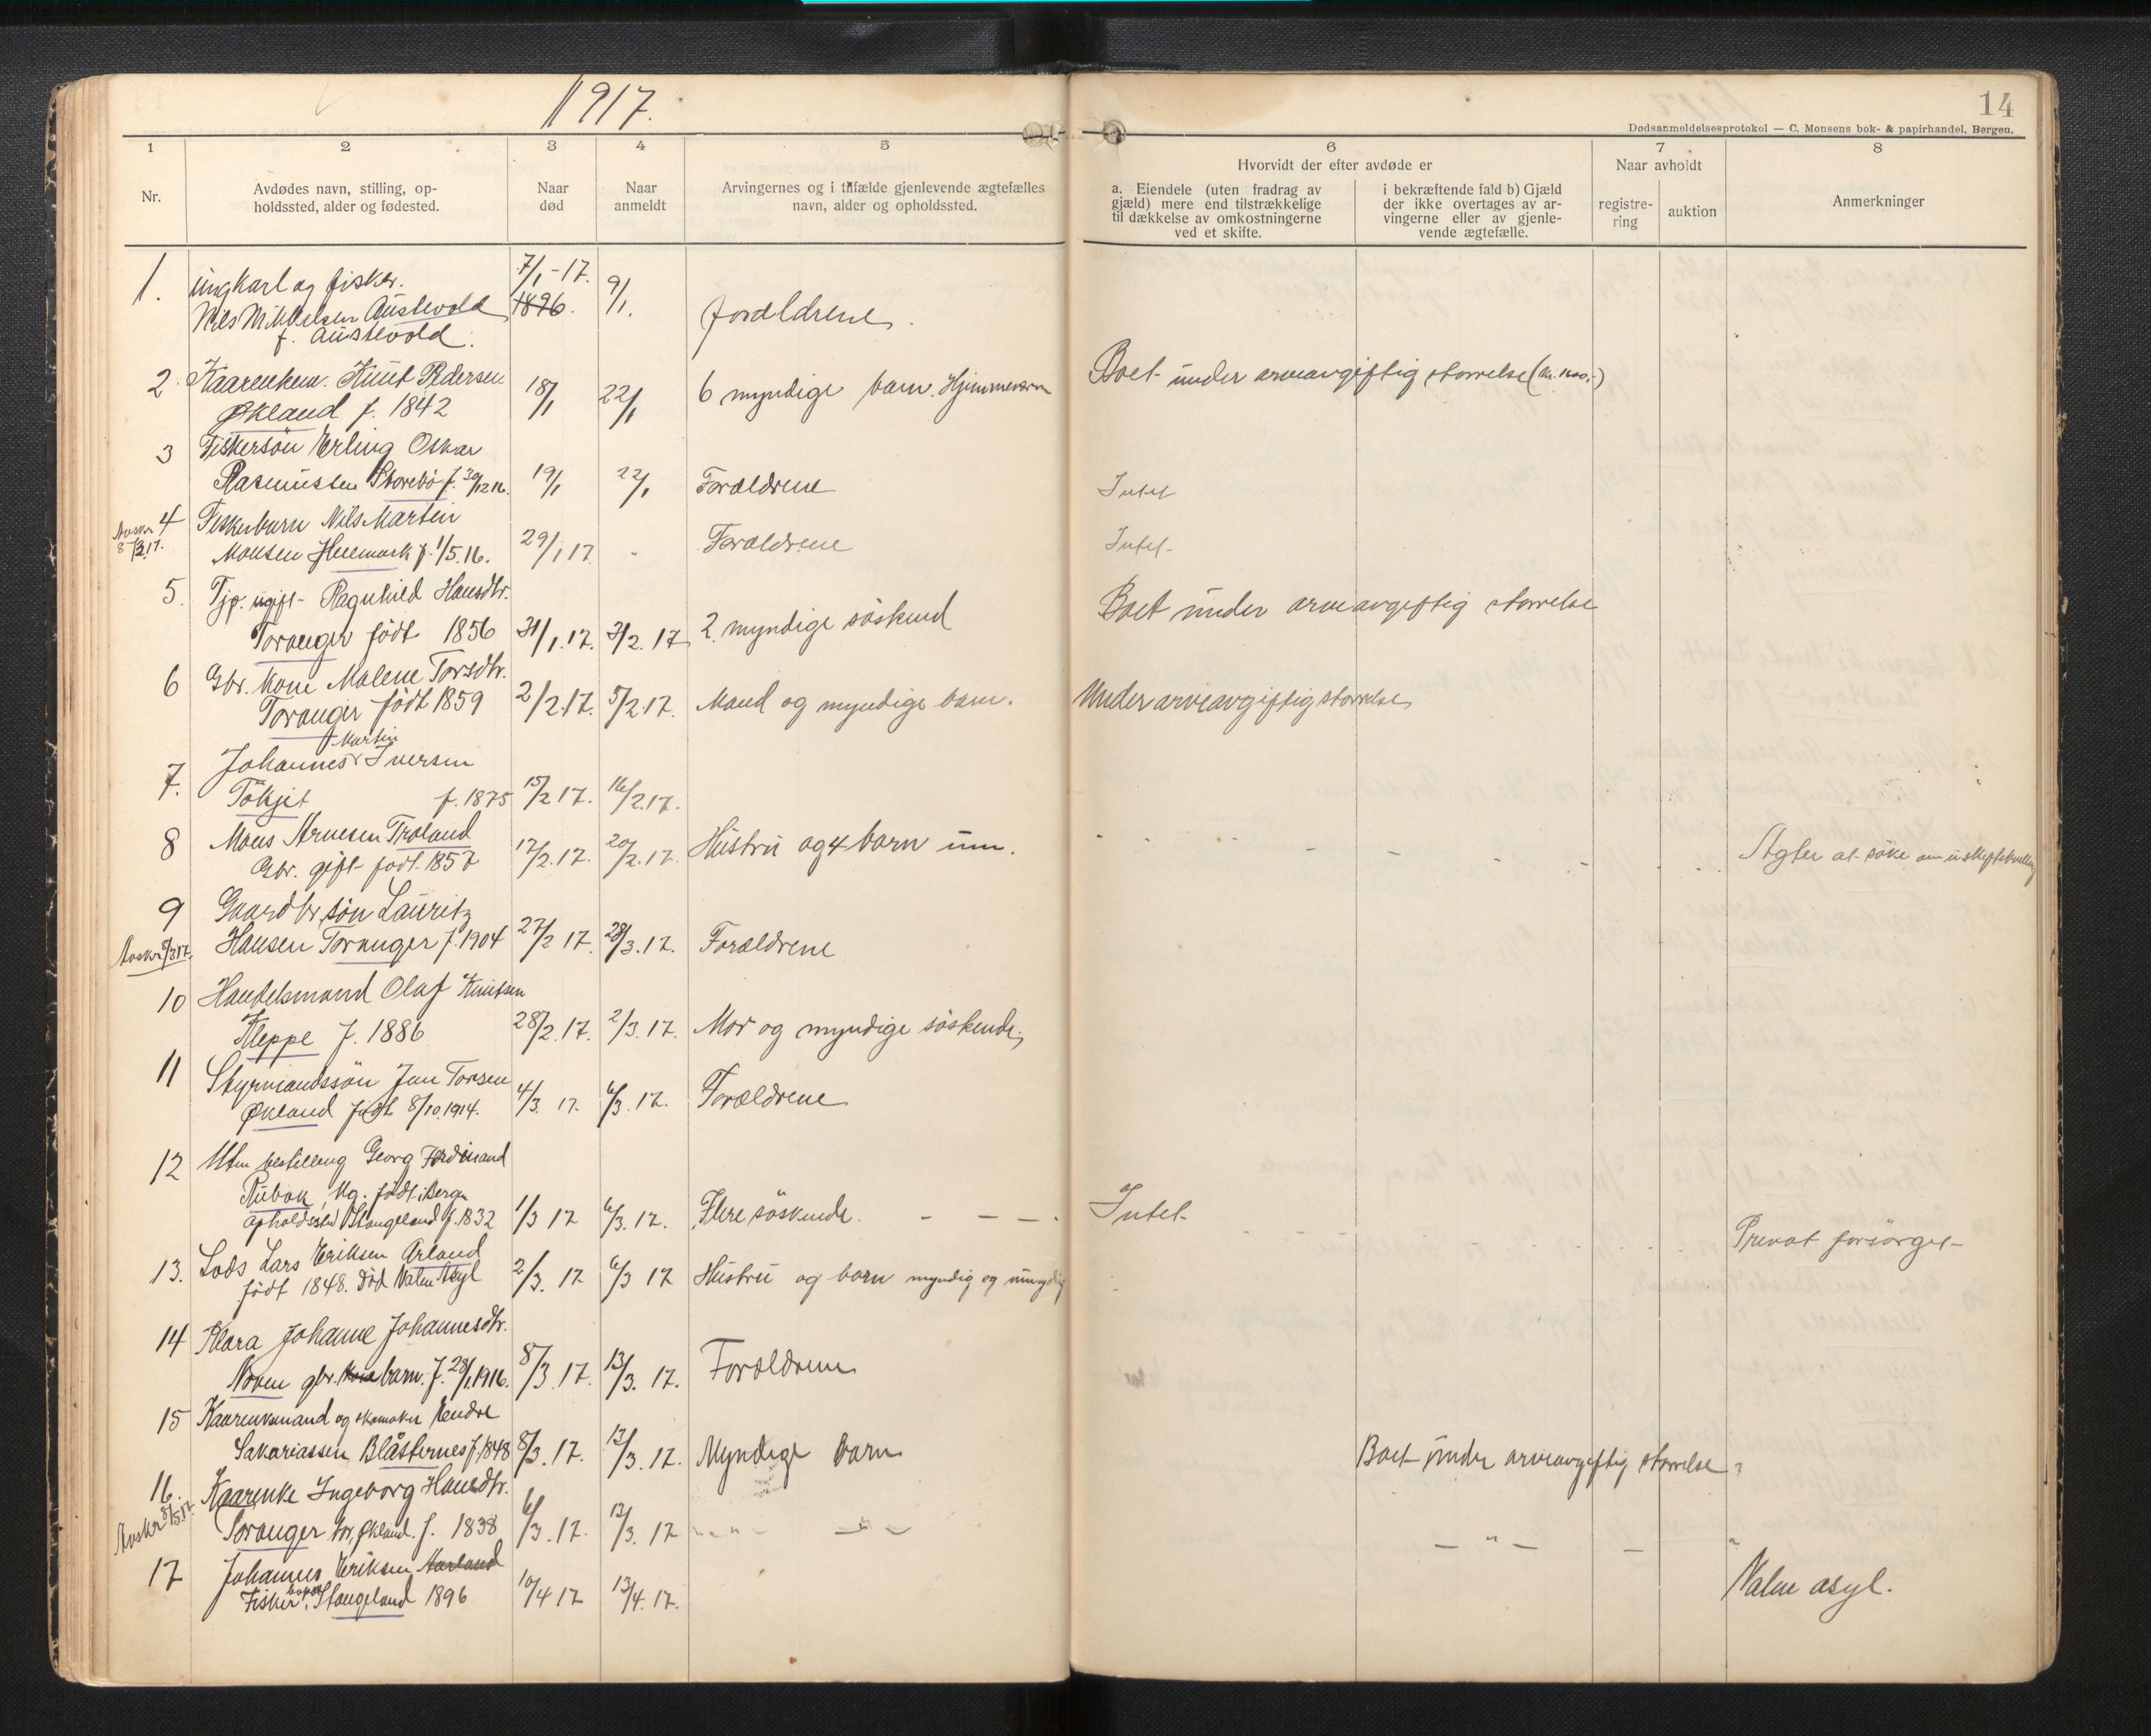 1917.
14
Dødsanmeldelsesprotokol — C. Monsens bok- & papirhandel, Bergen.
1 2 3 4 5 6 7 8
Nr.
Avdødes navn, stilling, op-
holdssted, alder og fødested.
Naar
død
Naar
anmeldt
Arvingernes og i tilfælde gjenlevende ægtefælles
navn, alder og opholdssted.
Hvorvidt der efter avdøde er
a. Eiendele (uten fradrag av
gjæld) mere end tilstrækkelige
til dækkelse av omkostningerne
ved et skifte.
i bekræftende fald b) Gjæld
der ikke overtages av ar-
vingerne eller av gjenle-
vende ægtefælle.
Naar avholdt
registre-
ring
auktion
Anmerkninger
1. ungkarl og fisker. 7/1-17. 9/1.
Nils Mikkelsen Austevold 1896. forældrene.
f. Austevold.
2. Kaarenkem. Knut Pedersen 18/1 22/1 6 myndige barn. Boet under arveavgiftig størrelse
Økland f. 1842
3 Fiskersøn Erling Oskar
Rasmussen Storebø f. 30/12 16. 19/1 22/1 Forældrene Intet
4 Fiskerbarn Nils Martin
Monsen f. 1/5.16. 29/1 17 " Forældrene Intet-
5. Tjp. ugift- Ragnhild Hansdtr. Boet under arveavgiftig størrelse
Toranger født 1856 31/1.17. 3/2.17 2 myndige søskend
6 Gbr. kone Malene Torsdtr.
Toranger født 1859 2/2.17. 5/2.17. Mand og myndige barn. Under arveavgiftig størrelse
Martin
7. Johannes Iversen
f. 1875 15/2 17. 16/2.17.
8 Mons Arnesen Træland 17/2.17. 20/2.17. Hustru og 4 barn um. Agter at søke om
Gbr. gift født 1857
9 Gaardbr. søn Lauritz
Avskr.
Hansen Toranger f. 1904 27/2 17. 28/3.17. Forældrene
10 Handelsmand Olaf Knutsen
Kleppe f. 1886 28/2.17. 2/3.17. Mor og myndige søskende
11 Styrmandssøn Jan Torsen
Økland født 8/10.1914. 4/3. 17. 6/3.17. Forældrene
12 Uten bestilling Georg Ferdinand
Ug. født i Bergen
opholdssted Stangeland f. 1832 1/3 17 6/3.17. Flere søskende. - - - Intet- Privat forsørget-
13. Lods Lars Eriksen Årland
født 1848. død Valen Asyl 2/3.17 6/3 17 Hustru og barn myndig og umyndig
14 Klara Johanne Johannesdtr.
gbr. barn. f. 28/1.1916. 8/3.17. 13/3.17. Forældrene
15 Kaarenkemand og skomaker Endre
Sakariassen Blåsternes f. 1848 8/3.17. 13/3.17. Myndige barn Boet under arveavgiftig størrelse
16. Kaarenke Ingeborg Hansdtr.
Avskr.
Toranger Økland. f. 1838 6/3.17. 13/3.17 — " —
17 Johannes Eriksen Aarland
Fisker Stangeland 1896 10/4 17 13/4.17. Valen asyl.